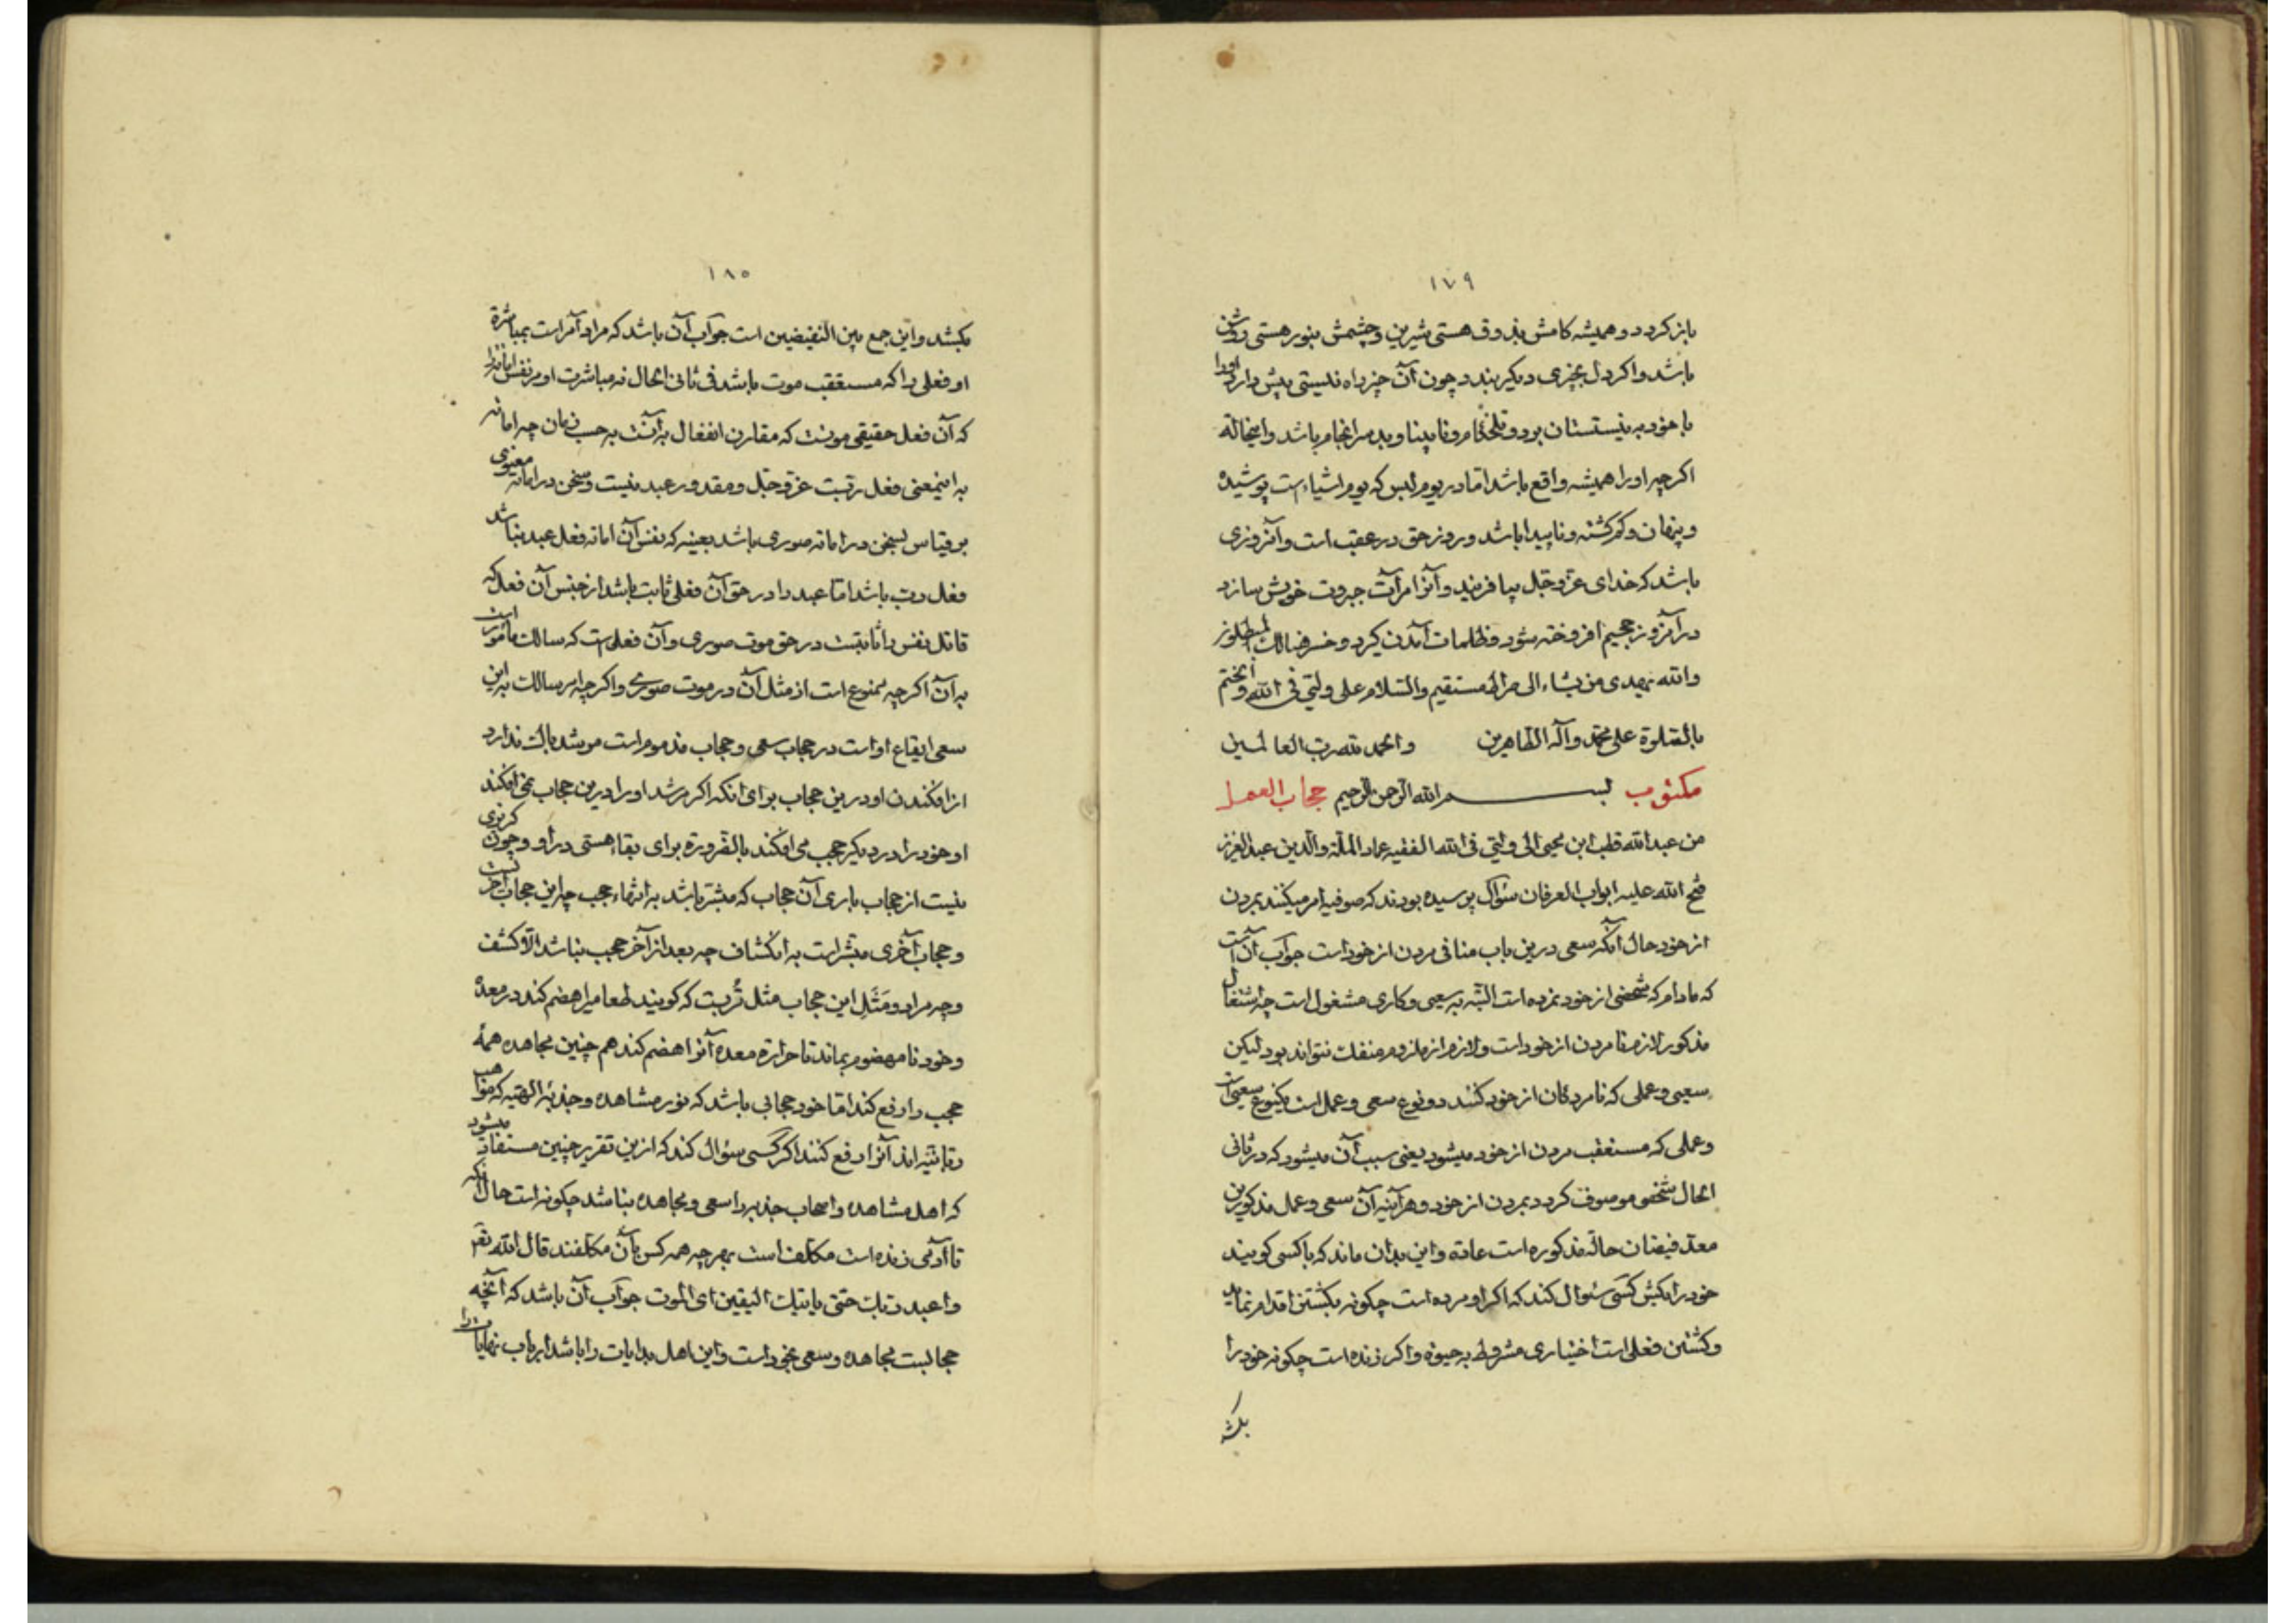 ١٧٩
باز کردد و همیشه کامش بذوق هستی شیرین و چشمش بنور هستی روشن
باشد واکر دل بچیزی دیکر بندد چون آن چیز راه نیستی پیش دارد اورا
با خود به نیستستان برد و تلخکام و نابینا و بد سرانجام باشد واینحاله
اکرچه اورا همیشه واقع باشد اما در یوم لبس که یوم اشیاء است پوشیده
و پنهان و کم کشته و ناپیدا باشد و روز حق در عقب است وآنروزی
باشد که خدای عز وجل بیافریند وآنرا مرآت جبروت خویش سازد
در آنروز جحیم افروخته شود و ظلمات آمدن کیرد و خسر هنالک المبطلون
والله یهدی من یشاء الی صراط مستقیم والسلام علی ولیی فی الله ویختم
بالصلوة علی محمد وآله الطاهرین والحمد لله رب العالمین
مکتوب بسم الله الرحمن الرحیم حجاب العمل
من عبدالله قطب ابن محیی الی ولیی فی الله الفقیه عماد الملة والدین عبدالعزیز
فتح الله علیه ابواب العرفان سؤال پرسیده بودند که صوفیه امر میکنند بمردن
از خود حال آنکه سعی درین باب منافی مردن از خود است جواب آن آنست
که مادام که شخصی از خود نمرده است البته به سعی و کاری مشغول است چه اشتغال
مذکور لازم نامردن از خود است ولازم از ملزوم منفک نتواند بود لیکن
سعیی و عملی که نامردکان از خود کنند دو نوع سعی و عمل است یکنوع سعیی است
و عملی که مستعقب مردن از خود میشود یعنی سبب آن میشود که در ثانی
الحال شخص موصوف کردد بمردن از خود و هرآینه آن سعی و عمل مذکورین
معد فیضان حالة مذکوره است عادة واین بدان ماند که باکسی کویند
خود را بکش کسی سئوال کند که اکر او مرده است چکونه بکشتن اقدام نماید
و کشتن فعلی است اختیاری مشروط به حیوة واکر زنده است چکونه خود را
بکشد
١٨٠
بکشد واین جمع بین النقیضین است جواب آن باشد که مراد آمر است بمباشرة
او فعلی را که مستعقب موت باشد فی ثانی الحال نه مباشرت او مر نفس اماته را
که آن فعل حقیقی موتست که مقارن انفعال به آنست به حسب زمان چه اماته
به اینمعنی فعل رب است عز وجل و مقدور عبد نیست و سخن در اماته معنوی
بر قیاس سخن در اماته صوری باشد بعینه که نفس آن اماته فعل عبد نباشد
فعل رب باشد اما عبد را در حق آن فعلی ثابت باشد از جنس آن فعل که
قاتل نفس را ثابتست در حق موت صوری وآن فعلی است که سالک مامور است
به آن اکرچه ممنوع است از مثل آن در موت صوری واکرچه امر سالک به این
سعی ایقاع او است در حجاب سعی و حجاب مذموم است مرشد باک ندارد
از افکندن او درین حجاب برای آنکه اکر مرشد اورا درین حجاب نمی افکند
او خود را در دیکر حجب می افکند بالضرورة برای بقاء هستی در او و چون کریزی
نیست از حجاب باری آن حجاب که مبشر باشد به انتهاء حجب چه این حجاب آخر است
و حجاب آخری مبشر است به انکشاف چه بعد از آخر حجب نباشد الا کشف
و چه مراد و مثل این حجاب مثل ترب است که کویند طعام را هضم کند در معده
و خود نامهضوم بماند تا حرارة معده آنرا هضم کند هم چنین مجاهده همهٔ
حجب را رفع کند اما خود حجابی باشد که نور مشاهده و جذبهٔ الهیه که مواهب
ربانیه اند آنرا رفع کنند اکر کسی سؤال کند که ازین تقریر چنین مستفاد میشود
که اهل مشاهده و اصحاب جذبه را سعی و مجاهده نباشد چکونه است حال آنکه
تا آدمی زنده است مکلف است بهرچه همه کس بآن مکلفند قال الله تعم
واعبد ربک حتی یاتیک الیقین ای الموت جواب آن باشد که آنچه
حجابست مجاهده و سعی بخود است واین اهل بدایات را باشد ارباب نهایات را